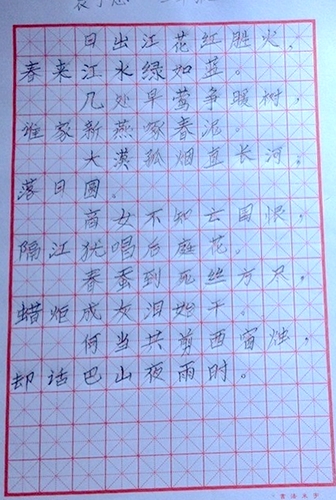 日出江花红胜火，
春来江水绿如蓝。
几处早莺争暖树，
谁家新燕啄春泥。
大漠孤烟直长河，
落日圆。
商女不知亡国恨，
隔江犹唱后庭花。
春蚕到死丝方尽，
蜡炬成灰泪始干。
何当共剪西窗烛，
却话巴山夜雨时。